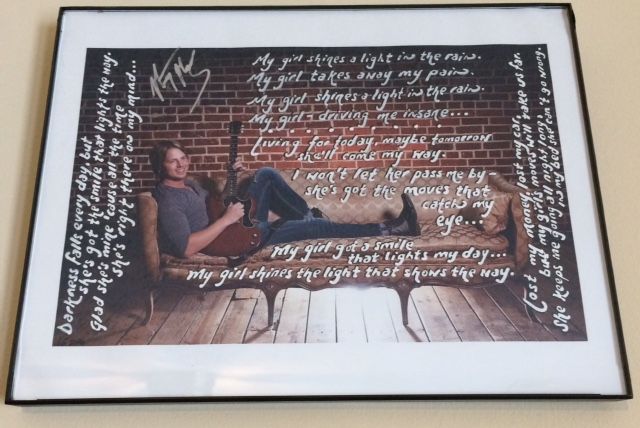 Darkness falls every day, but
she's got the smile that lights the way.
Glad she's mine 'cause all the time
she's right there on my mind...
My girl shines a light in the rain.
My girl takes away my pain.
My girl shines a light in the rain.
My girl - driving me insane...
Living for today, maybe tomorrow
she'll come my way.
I won't let her pass me by -
she's got the moves that
catch my
eye...
My girl got a smile
that lights my day...
My girl shines the light that shows the way.
Lost my money, lost my car,
but my girl's moves will take us far.
She keeps me going all night long,
in my bed she can't go wrong.